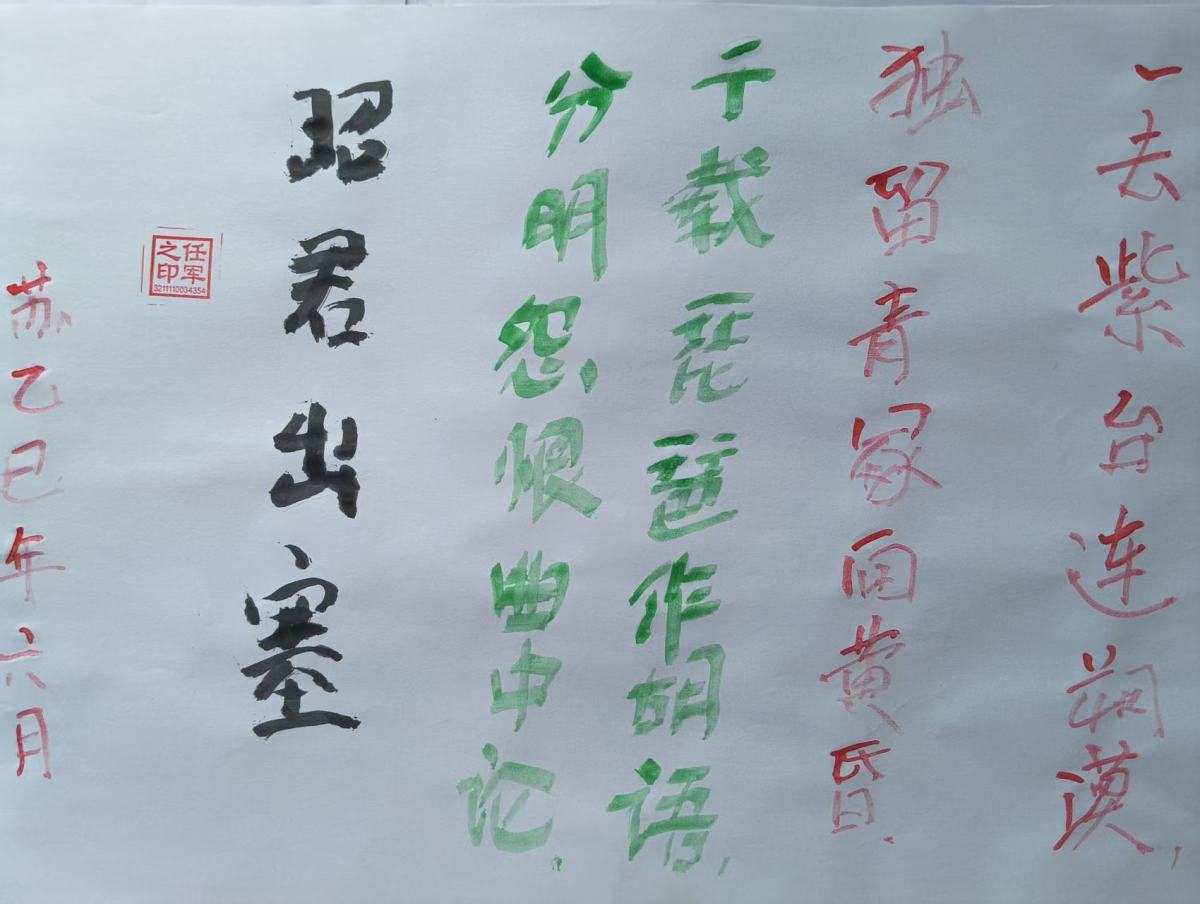 一去紫台连朔漠,
独留青冢向黄昏.
千载琵琶作胡语,
分明怨恨曲中论.
昭君出塞
任军之印
3211110034354
苏乙巳年六月